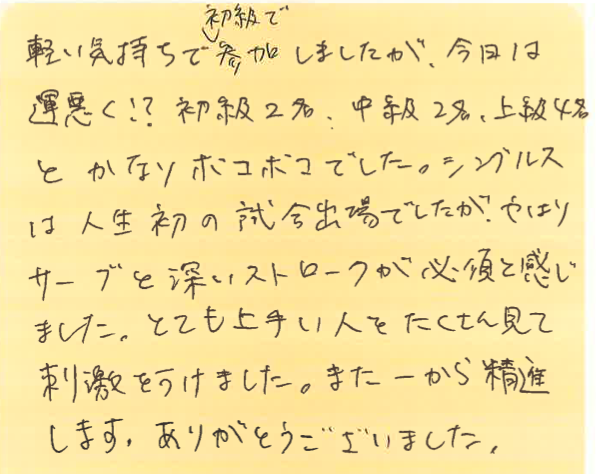 初級で
軽い気持ちで参加しましたが、今日は
運悪く!? 初級2名、中級2名、上級4名
とかなりボコボコでした。シングルス
は人生初の試合出場でしたが、やはり
サーブと深いストロークが必須と感じ
ました。とても上手い人をたくさん見て
刺激をうけました。また一から精進
します。ありがとうございました。